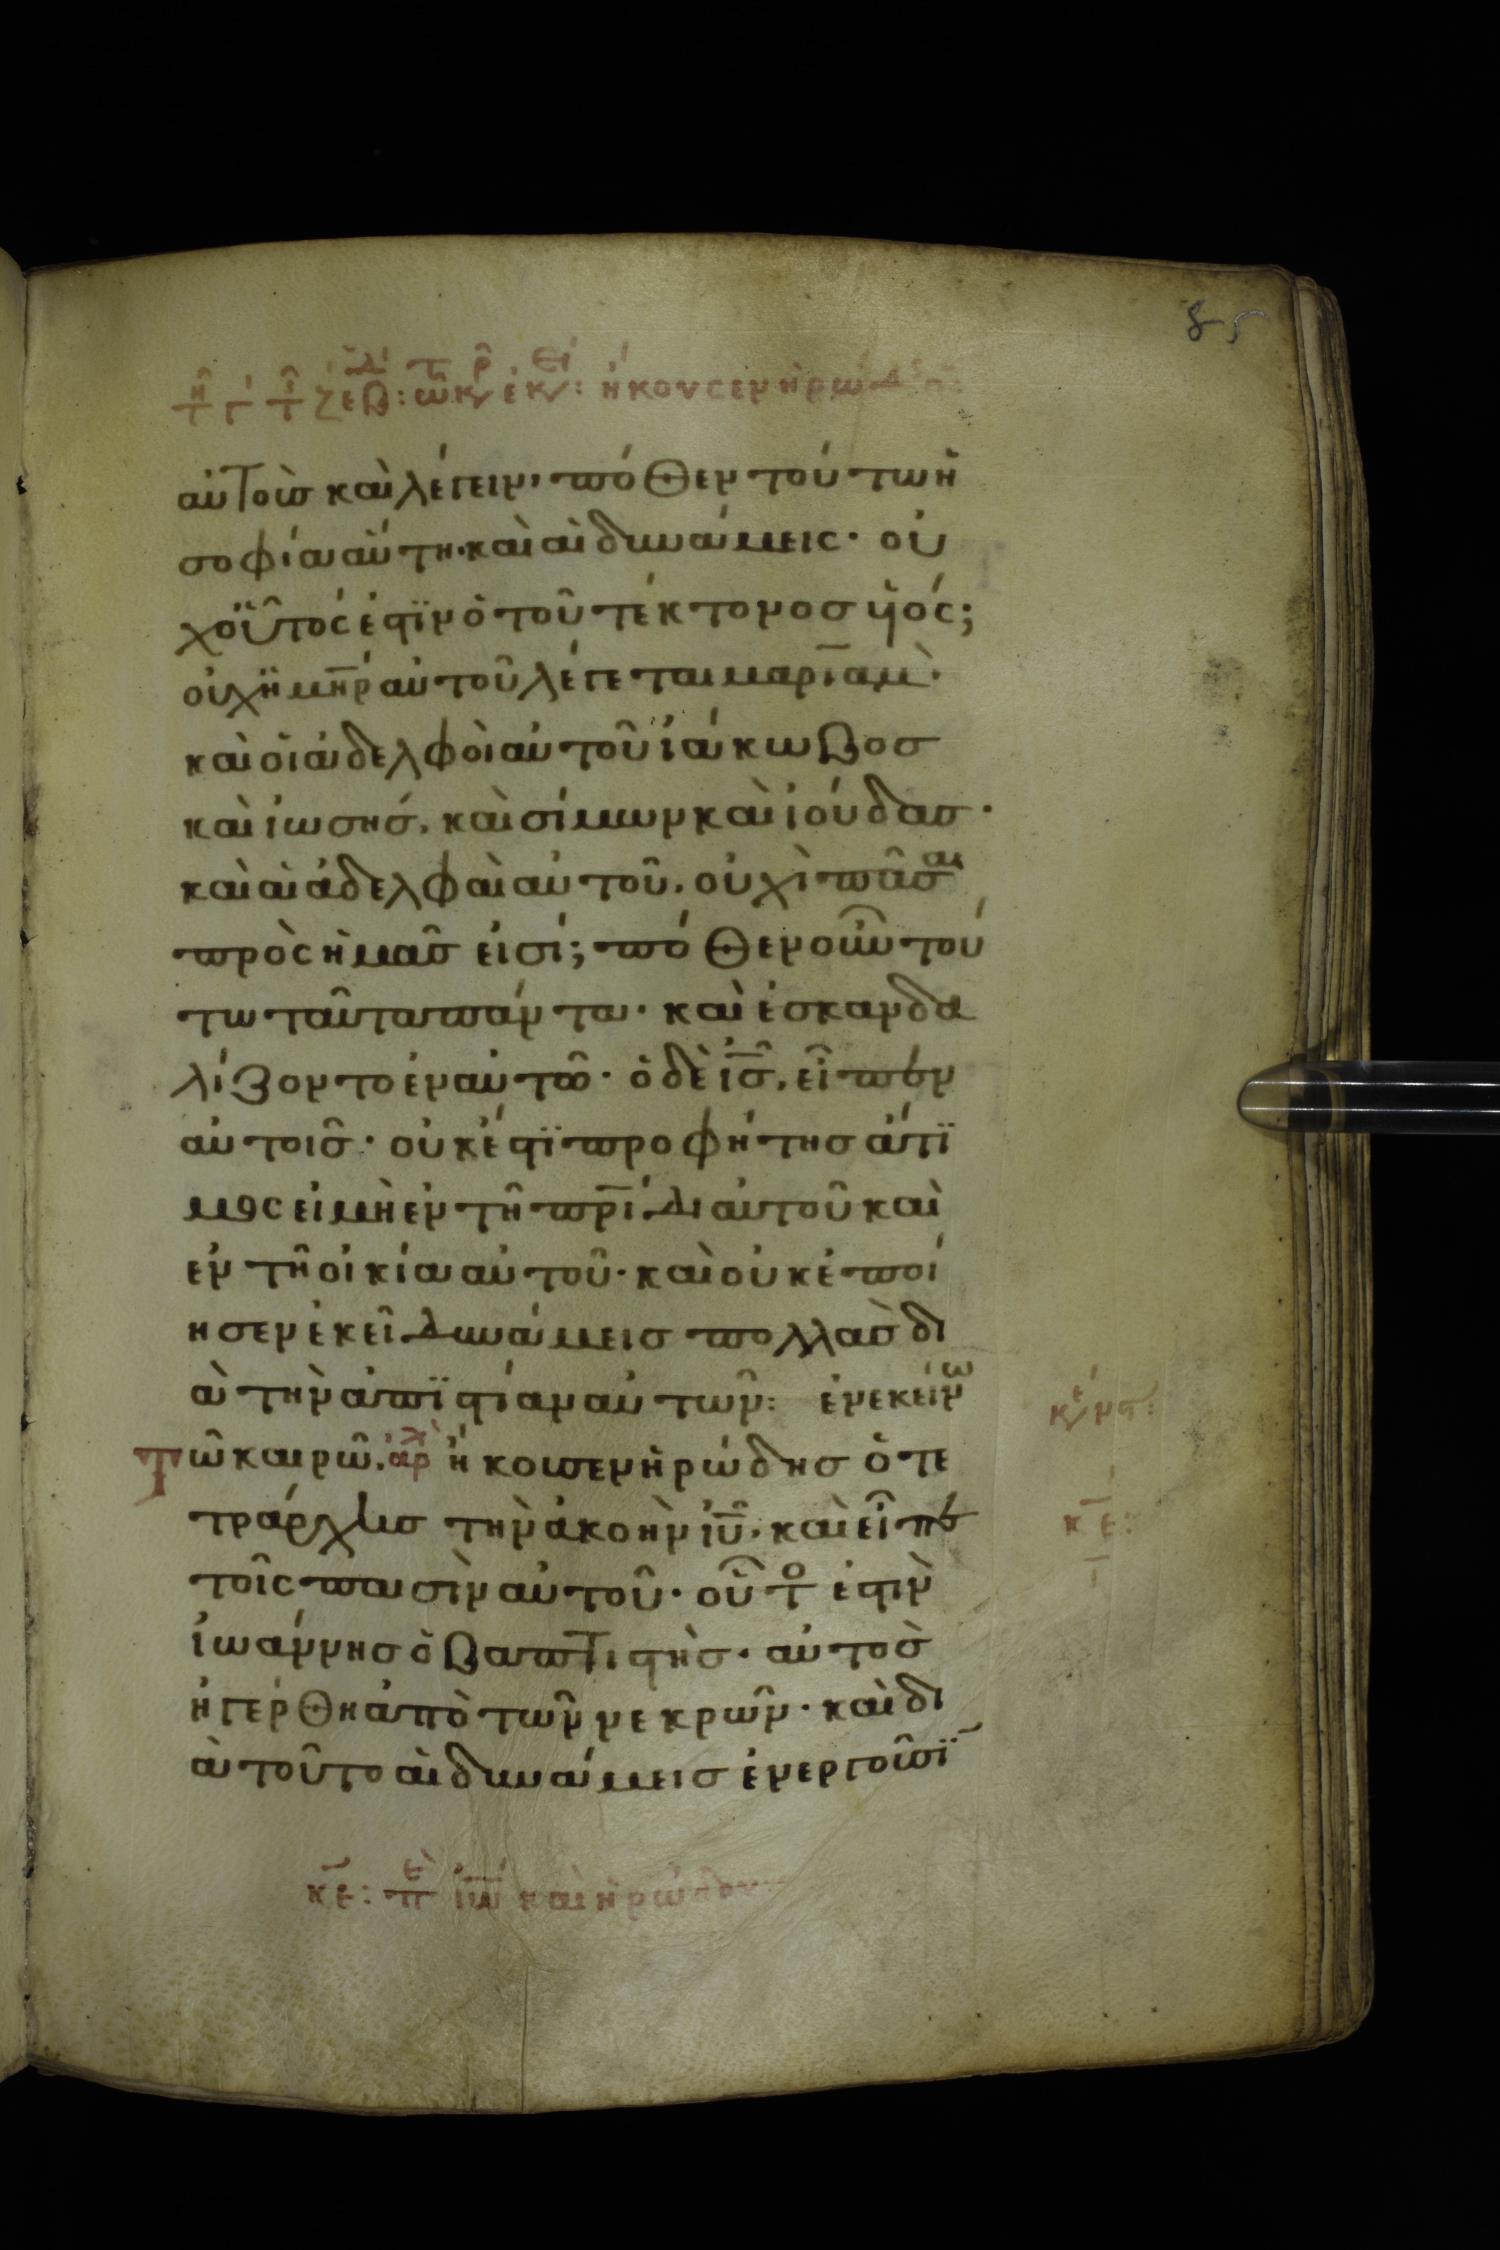 85
τῇ γ τ ζ εβ: τῶ κ ἐκ: ἤκουσεν ἡρώδης
αὐτοὺς καὶ λέγειν, πόθεν τούτω ἡ
σοφία αὕτη. καὶ αἱ δυνάμεις· οὐ
χ οὗτός ἐστϊν ὁ τοῦ τέκτονος υἱός;
οὐχῒ ἡ μη̅ρ αὐτοῦ λέγεται μαρϊὰμ·
καὶ οἱ ἀδελφοὶ αὐτοῦ ἰάκωβος
καὶ ἰωσῆς, καὶ σίμων καὶ ἰούδας·
καὶ αἱ ἀδελφαὶ αὐτοῦ, οὐχὶ πᾶσαι
πρὸς ἡμᾶς εἰσί; πόθεν οὖν τού
τω ταῦτα πάντα· καὶ ἐσκανδα
λίζοντο ἐν αὐτῶ· ὁ δὲ ι̅ς̅, εἶπεν
αὐτοῖς· οὐκ ἔστϊ προφήτης ἄτϊ
μος εἰ μὴ ἐν τῆ πρ̅ίδι αὐτοῦ καὶ
ἐν τῆ οἰκία αὐτοῦ· καὶ οὐκ ἐποί
ησεν ἐκεῖ δυνάμεις πολλὰς δι
ὰ τὴν ἀπϊστίαν αὐτῶν: ἐν ἐκείνω
Τῶ καιρῶ, ἀρχ ἤκουσεν ἡρώδης ὁ τε
τράρχης τὴν ἀκοὴν ι̅υ̅, καὶ εἶπε
τοῖς παισὶν αὐτοῦ· οὗτος ἐστιν
ἰωάννης ὁ βαπτιστὴς· αὐτὸς
ἠγέρθη ἀπὸ τῶν νεκρῶν· καὶ δι
ὰ τοῦτο αἱ δυνάμεις ἐνεργοῦσϊ
κε: πε ἰω καὶ ἡρώδου
κε: